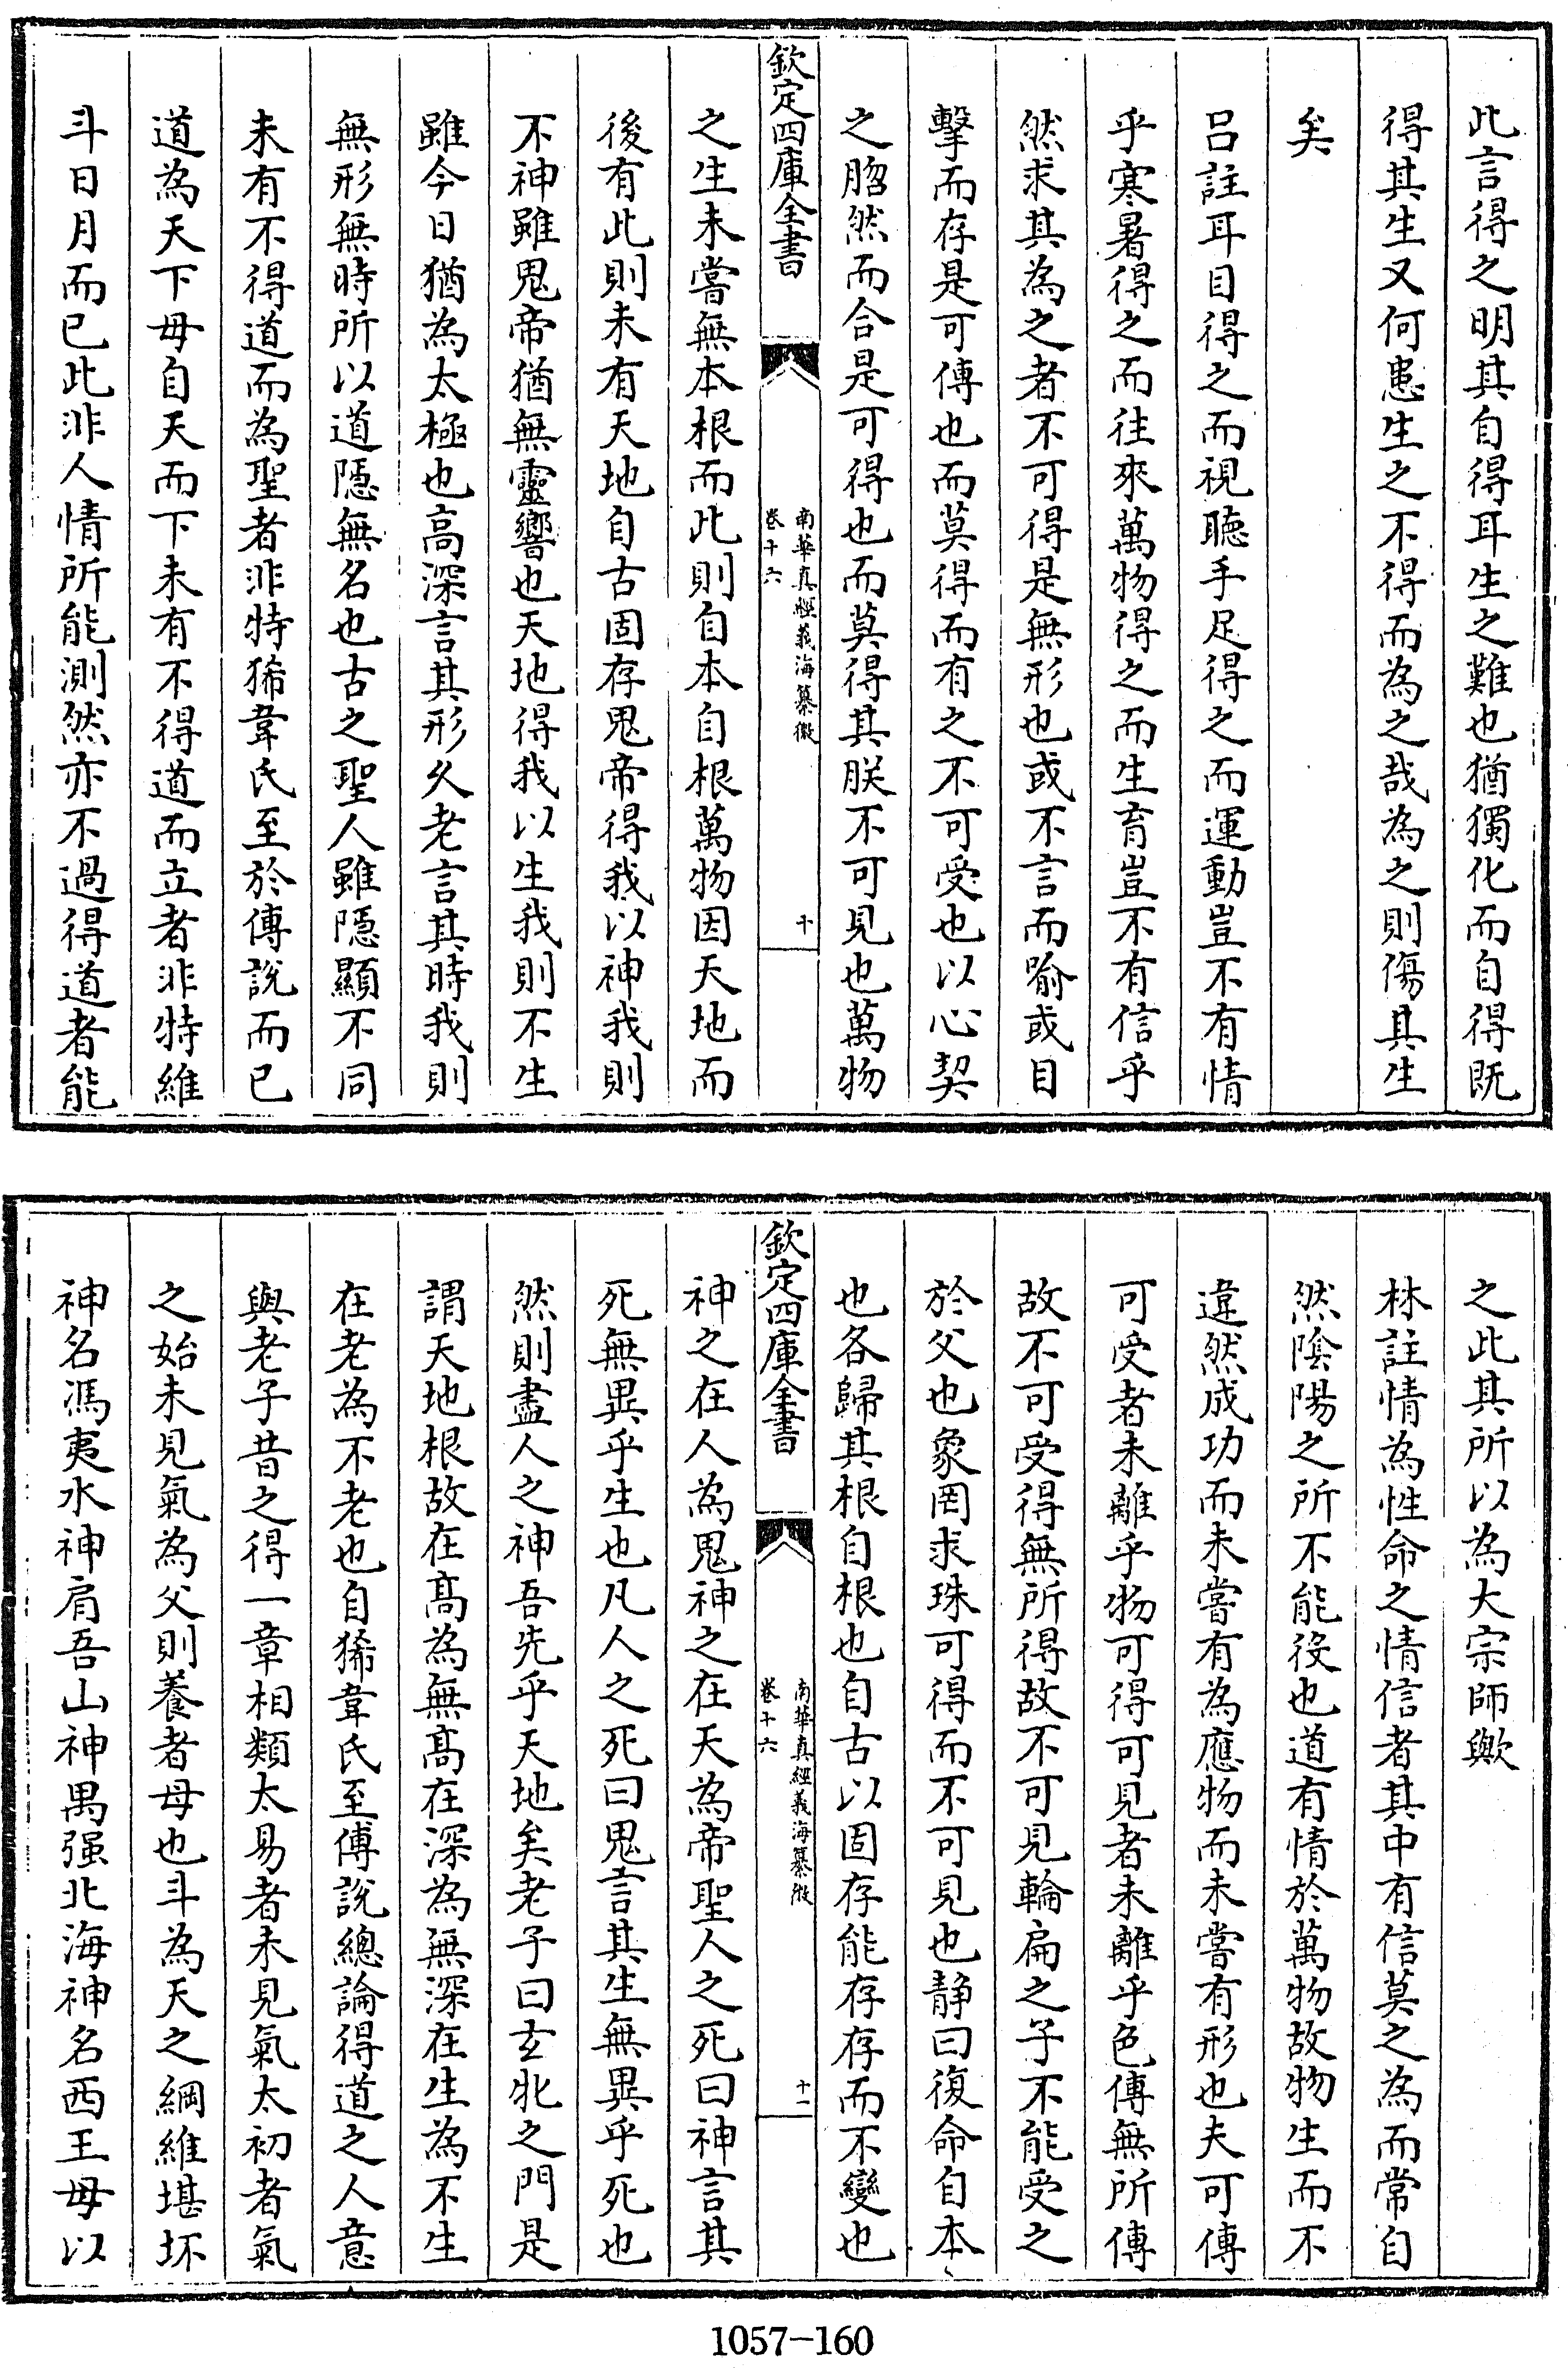 此言得之明其自得耳生之難也猶獨化而自得既
得其生又何患生之不得而為之哉為之則傷其生
矣
呂註耳目得之而視聽手足得之而運動豈不有情
乎寒暑得之而往來萬物得之而生育豈不有信乎
然求其為之者不可得是無形也或不言而喻或目
擊而存是可傳也而莫得而有之不可受也以心契
之脗然而合是可得也而莫得其朕不可見也萬物
欽定四庫全書
南華真經義海纂微
卷十六
十
之生未嘗無本根而此則自本自根萬物因天地而
後有此則未有天地自古固存鬼帝得我以神我則
不神雖鬼帝猶無靈響也天地得我以生我則不生
雖今日猶為太極也高深言其形久老言其時我則
無形無時所以道隱無名也古之聖人雖隱顯不同
未有不得道而為聖者非特狶韋氏至於傅說而已
道為天下母自天而下未有不得道而立者非特維
斗日月而已此非人情所能測然亦不過得道者能
之此其所以為大宗師歟
林註情為性命之情信者其中有信莫之為而常自
然陰陽之所不能役也道有情於萬物故物生而不
違然成功而未嘗有為應物而未嘗有形也夫可傳
可受者未離乎物可得可見者未離乎色傳無所傳
故不可受得無所得故不可見輪扁之子不能受之
於父也象罔求珠可得而不可見也静曰復命自本
也各歸其根自根也自古以固存能存存而不變也
欽定四庫全書
南華真經義海纂微
卷十六
十一
神之在人為鬼神之在天為帝聖人之死曰神言其
死無異乎生也凡人之死曰鬼言其生無異乎死也
然則盡人之神吾先乎天地矣老子曰玄牝之門是
謂天地根故在髙為無髙在深為無深在生為不生
在老為不老也自狶韋氏至傅說總論得道之人意
與老子昔之得一章相類太易者未見氣太初者氣
之始未見氣為父則養者母也斗為天之綱維堪坏
神名馮夷水神肩吾山神禺强北海神名西王母以
1057-160